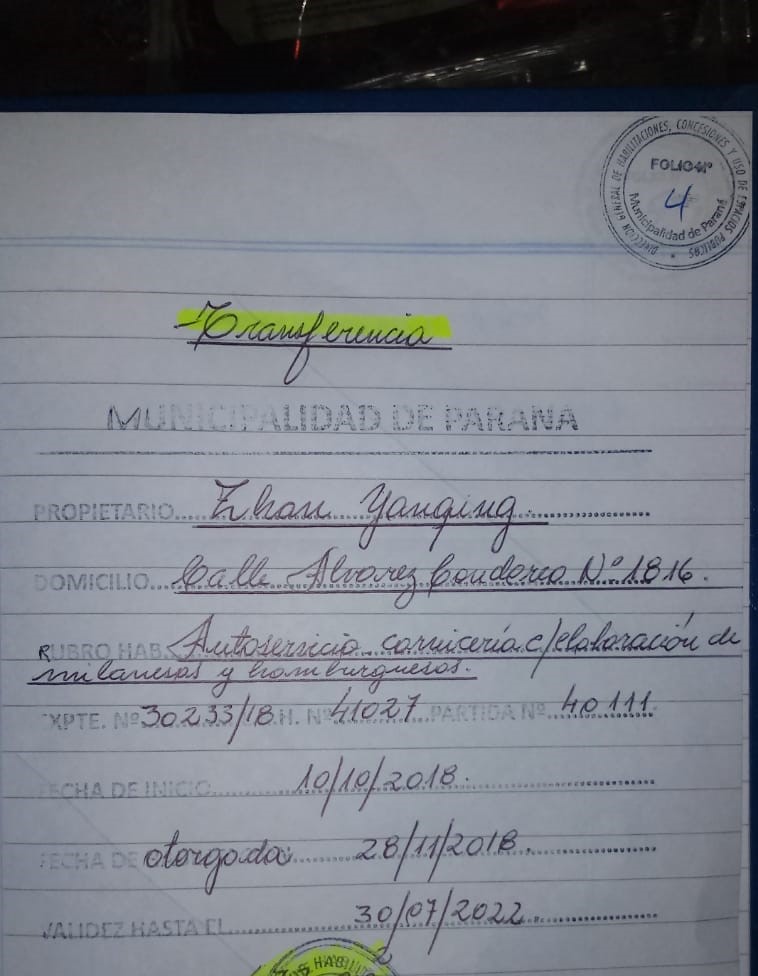 DIRECCIÓN GENERAL DE HABILITACIONES, CONCESIONES Y USO DE ESPACIOS PÚBLICOS
FOLIO Nº
4
Municipalidad de Paraná
Transferencia
MUNICIPALIDAD DE PARANA
PROPIETARIO... Zhou Yanqing
DOMICILIO... Calle Alvarez Condarco Nº 1816.
RUBRO HAB. Autoservicio, carnicería c/elaboración de
milanesas y hamburguesas.
EXPTE. Nº 30233/18 H. Nº 41027 PARTIDA Nº 40111
FECHA DE INICIO 10/10/2018.
FECHA DE otorgada 28/11/2018.
VALIDEZ HASTA EL 30/07/2022